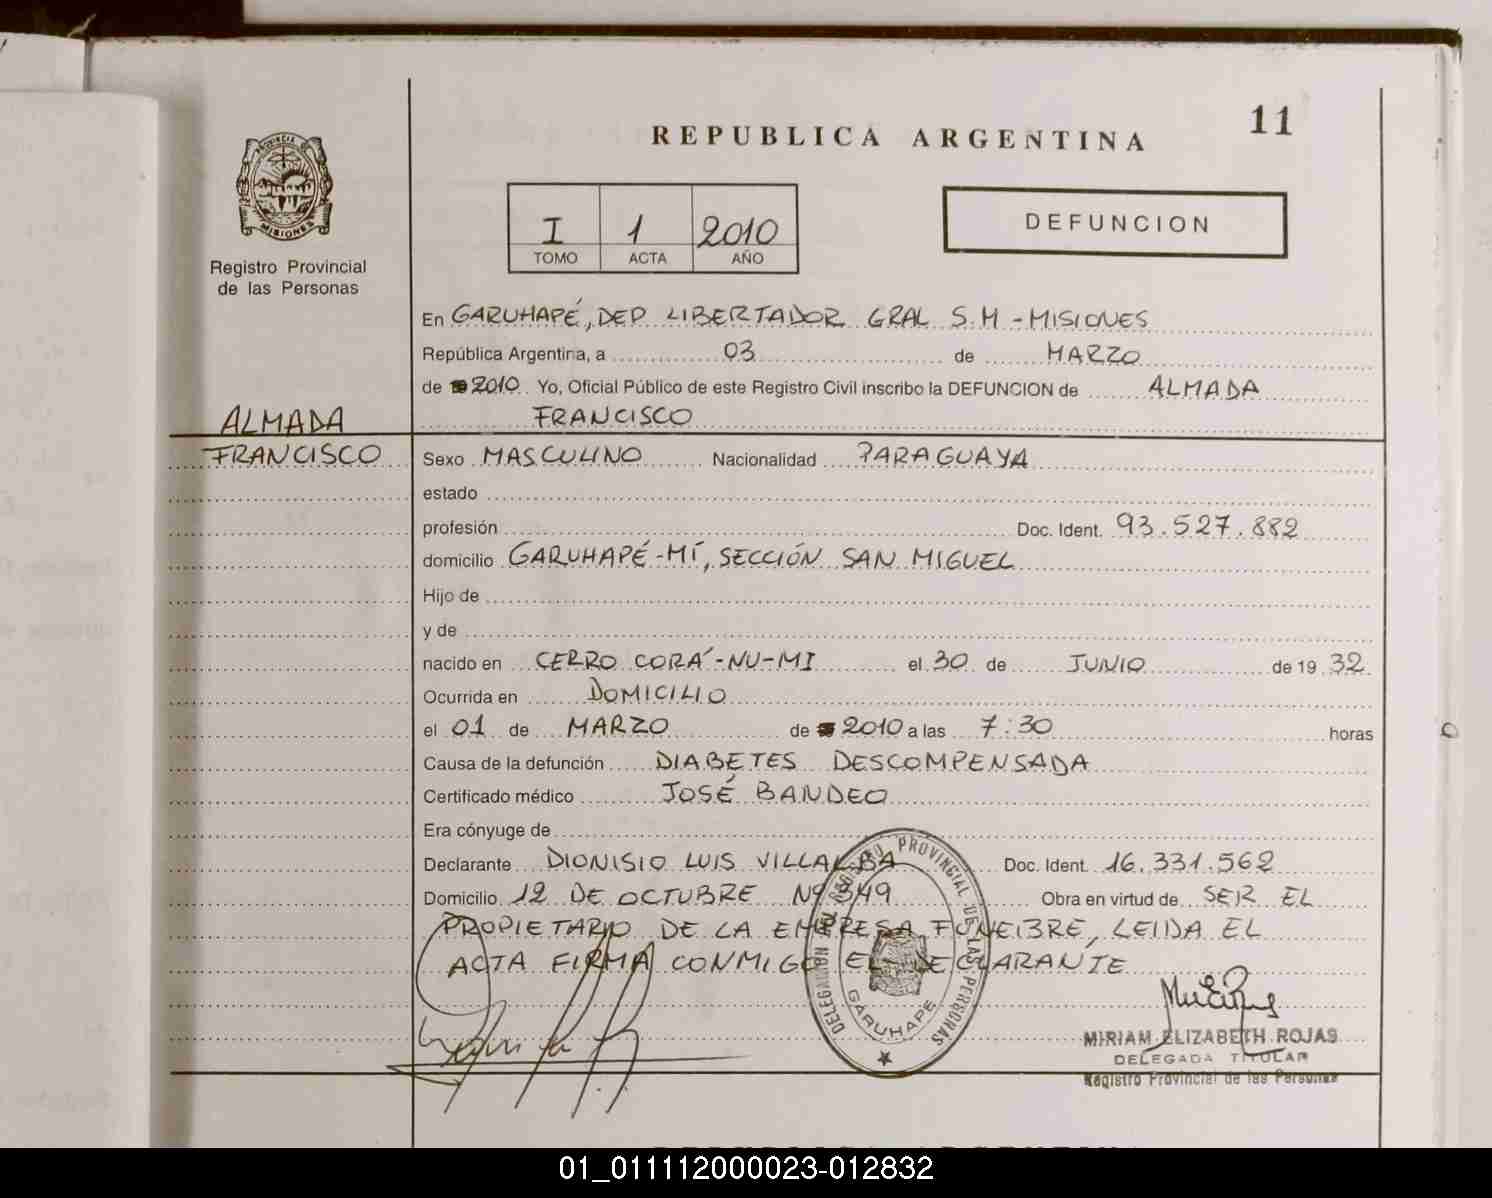 11
REPUBLICA ARGENTINA
PROVINCIA DE
MISIONES
Registro Provincial
de las Personas
I 1 2010
TOMO ACTA AÑO
DEFUNCION
En GARUHAPÉ, DEP LIBERTADOR GRAL S.M - MISIONES
República Argentina, a 03 de MARZO
de 2010 Yo, Oficial Público de este Registro Civil inscribo la DEFUNCION de ALMADA
FRANCISCO
ALMADA
FRANCISCO
Sexo MASCULINO Nacionalidad PARAGUAYA
estado
profesión Doc. Ident. 93.527.882
domicilio GARUHAPÉ-MÍ, SECCIÓN SAN MIGUEL
Hijo de
y de
nacido en CERRO CORÁ-NU-MI el 30 de JUNIO de 19 32
Ocurrida en DOMICILIO
el 01 de MARZO de 2010 a las 7:30 horas
Causa de la defunción DIABETES DESCOMPENSADA
Certificado médico JOSÉ BANDEO
Era cónyuge de
Declarante DIONISIO LUIS VILLALBA Doc. Ident. 16.331.562
Domicilio 12 DE OCTUBRE Nº 349 Obra en virtud de SER EL
PROPIETARIO DE LA EMPRESA FUNEBRE, LEIDA EL
ACTA FIRMA CONMIGO EL DECLARANTE
DELEGACION DEL REGISTRO PROVINCIAL DE LAS PERSONAS
GARUHAPE
MIRIAM ELIZABETH ROJAS
DELEGADA TITULAR
Registro Provincial de las Personas
01_011112000023-012832